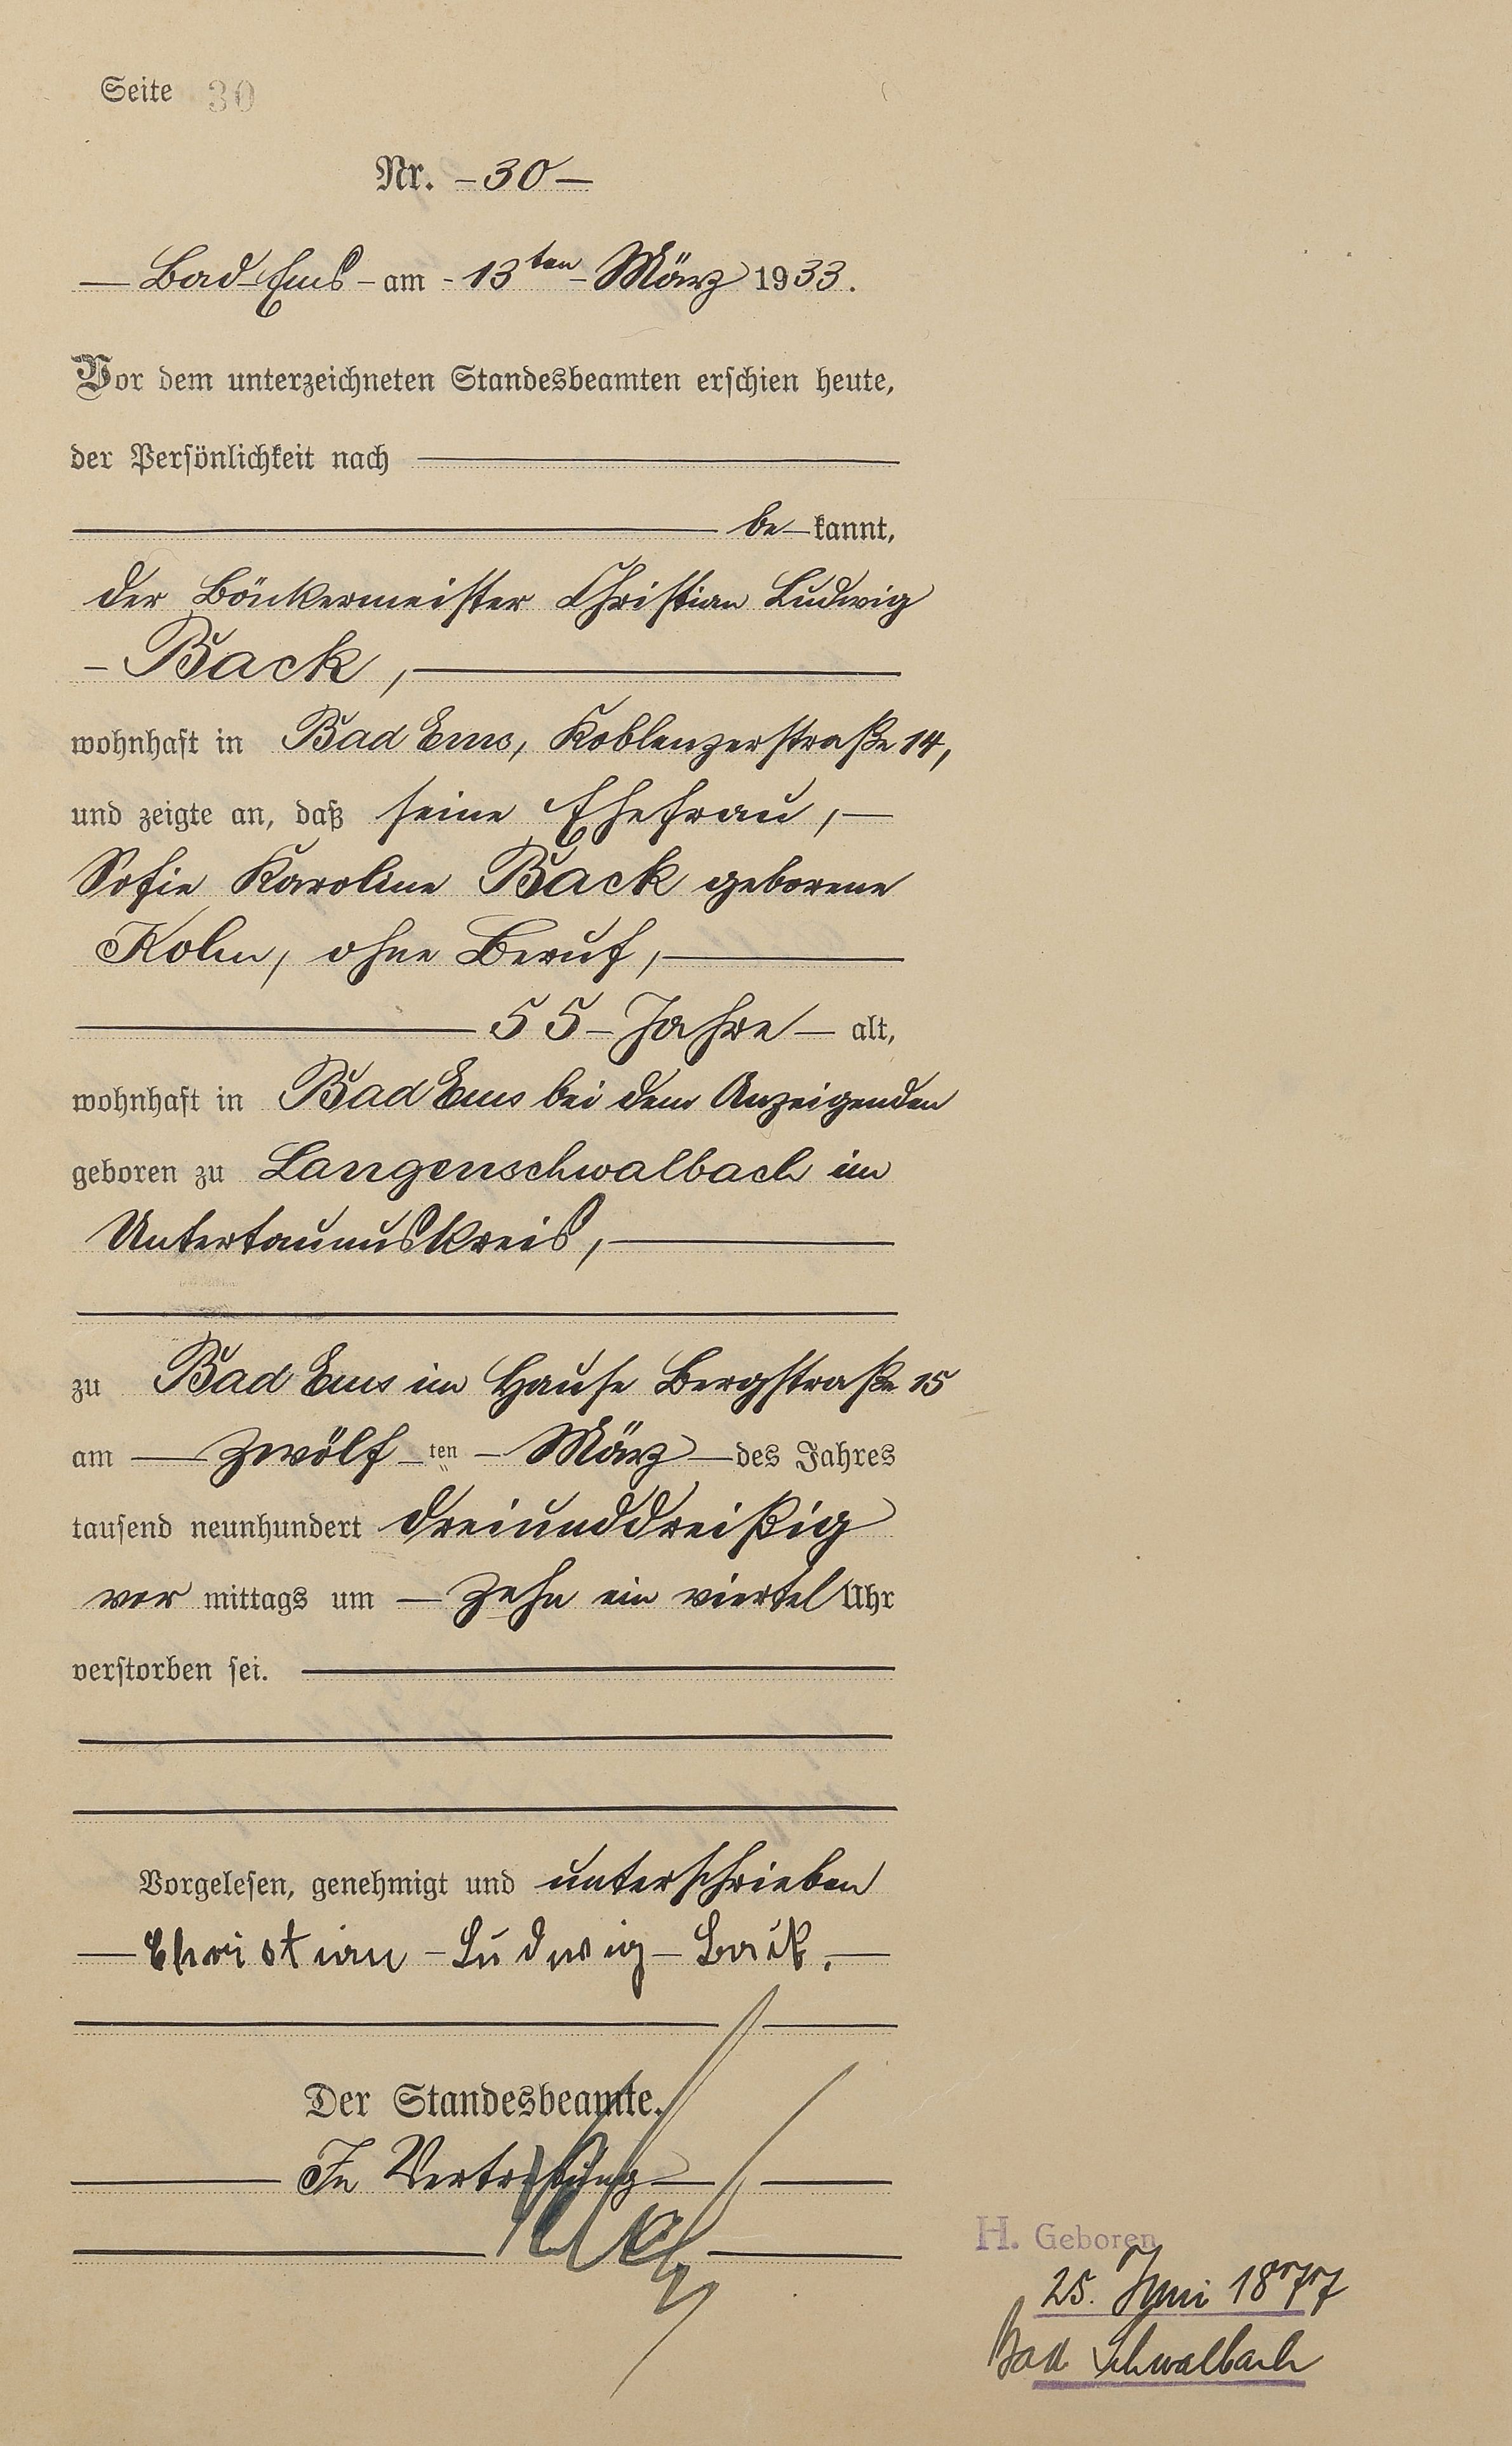 Seite 30
Nr. – 30 –
— Bad Ems – am – 13ten – März 1933.
Vor dem unterzeichneten Standesbeamten erschien heute,
der Persönlichkeit nach
be – kannt,
der Bäckermeister Christian Ludwig
– Back,
wohnhaft in Bad Ems, Koblenzerstraße 14,
und zeigte an, daß seine Ehefrau, —
Sofie Karoline Back geborene
Kolm, ohne Beruf,
55 – Jahre – alt,
wohnhaft in Bad Ems bei dem Anzeigenden
geboren zu Langenschwalbach im
Untertaunuskreis,
zu Bad Ems im Hause Bergstraße 15
am — zwölf – ten – März – des Jahres
tausend neunhundert dreiunddreißig
vor mittags um — zehn ein viertel Uhr
verstorben sei.
Vorgelesen, genehmigt und unterschrieben
— Christian – Ludwig – Back. —
Der Standesbeamte.
In Vertretung
H. Geboren
25. Juni 1877
Bad Schwalbach